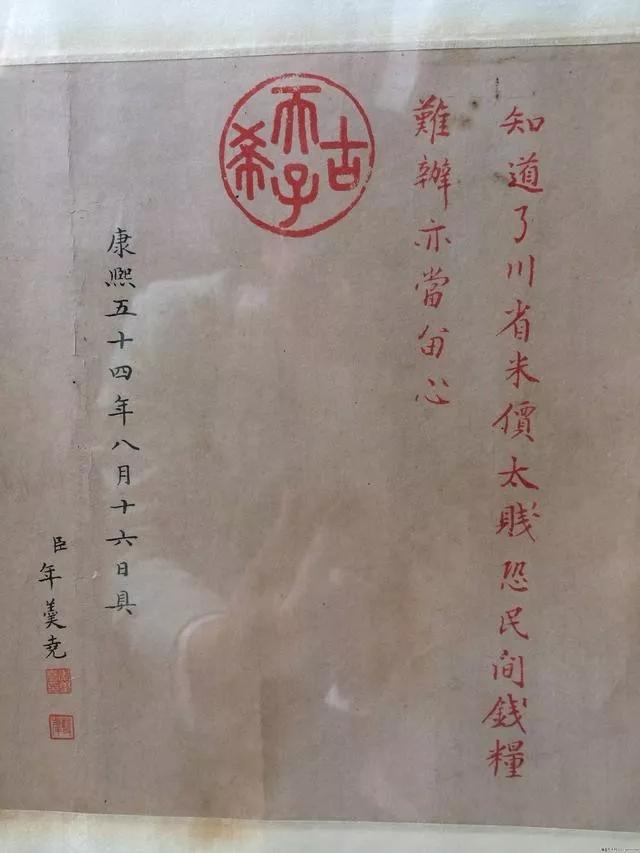 知道了川省米價太賤恐民間錢糧
難辦亦當留心
古希天子
康熙五十四年八月十六日具
臣年羹堯